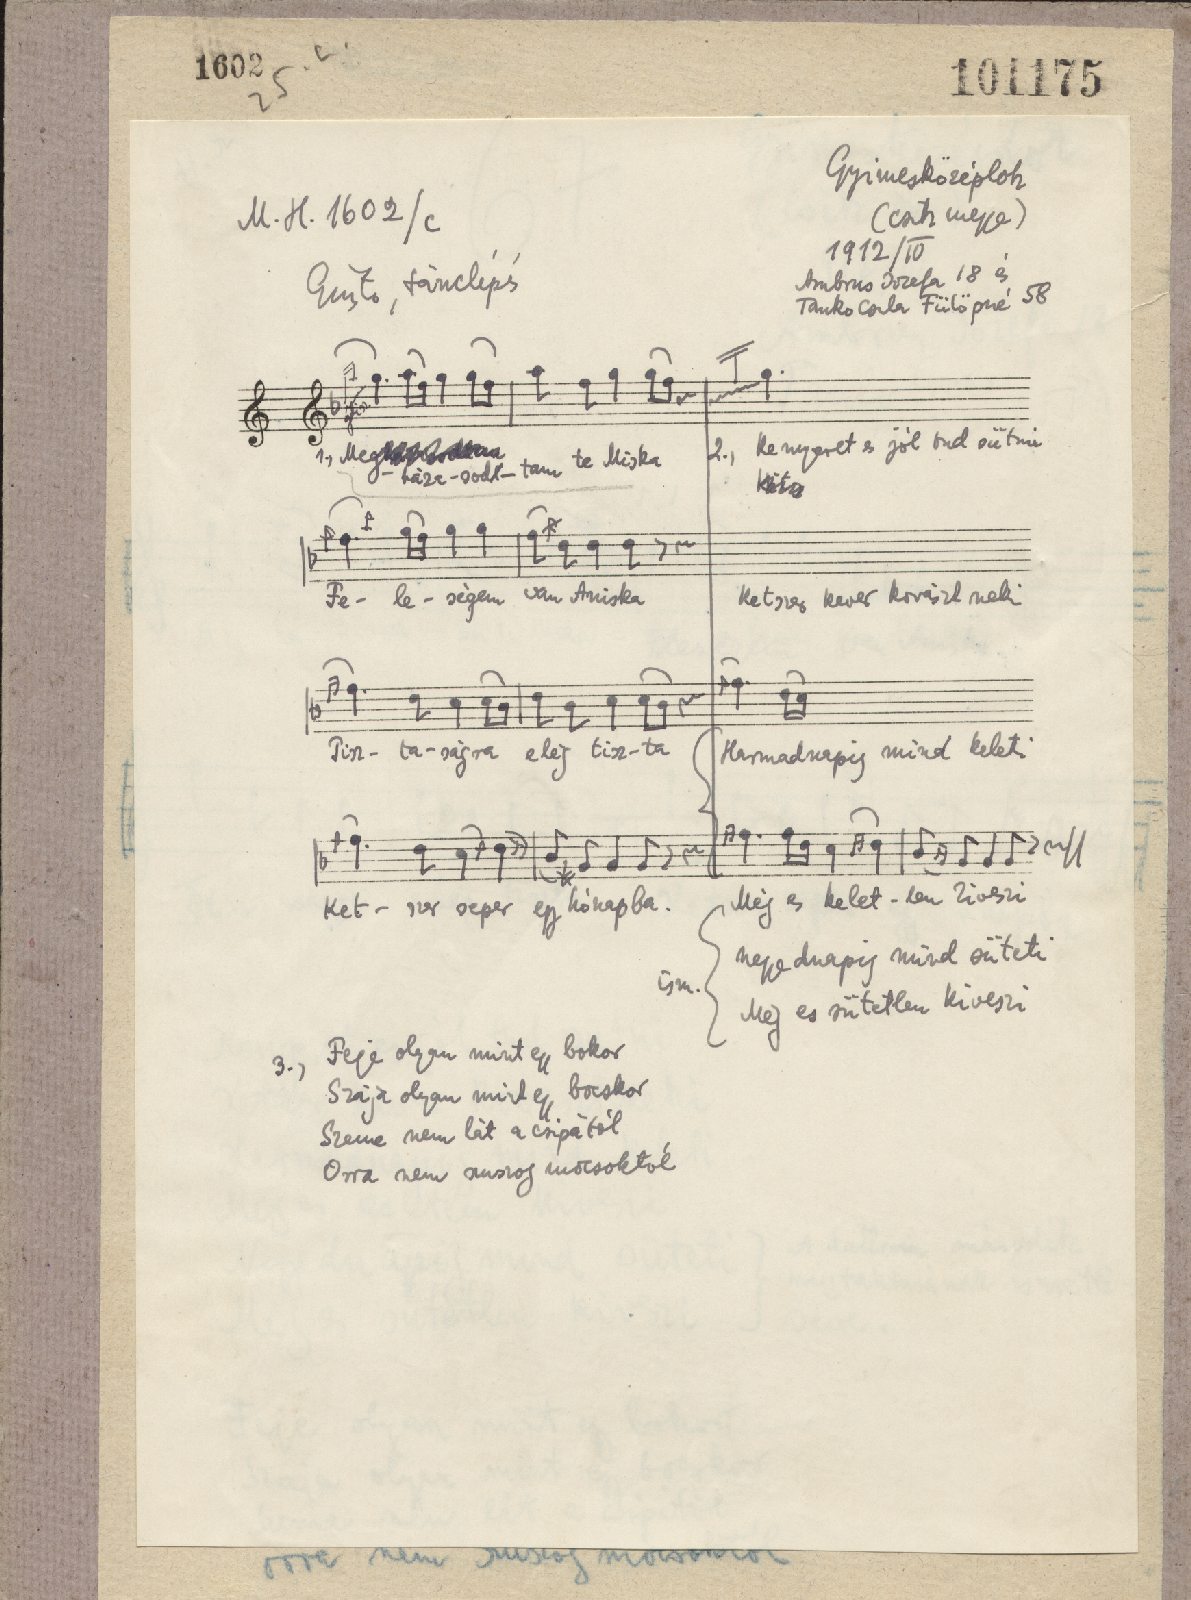 1602
25.
101175
M.H. 1602/c
Gyimesközéplok
(Csík megye)
1912/IV
Ambrus Jozefa 18 és
Tankó Csula Fülöpné 58
Guzs, tánclépés
1., Meg-háza-sodt-tam te Miska
2., Kenyeret es jól tud sütni
Fe- le- ségem van Aniska
Ketszer kever kovászt neki
Tisz- ta-ságra elég tisz-ta
Harmadnapig mind keleti
Ket- szer seper egy hónapba.
Még es kelet-len kiveszi
ism.
negyednapig mind süteti
Még es sütetlen kiveszi
3., Feje olyan mint egy bokor
Szája olyan mint egy bocskor
Szeme nem lát a csipától
Orra nem szuszog mocsoktól
orra nem szuszog mocsoktól